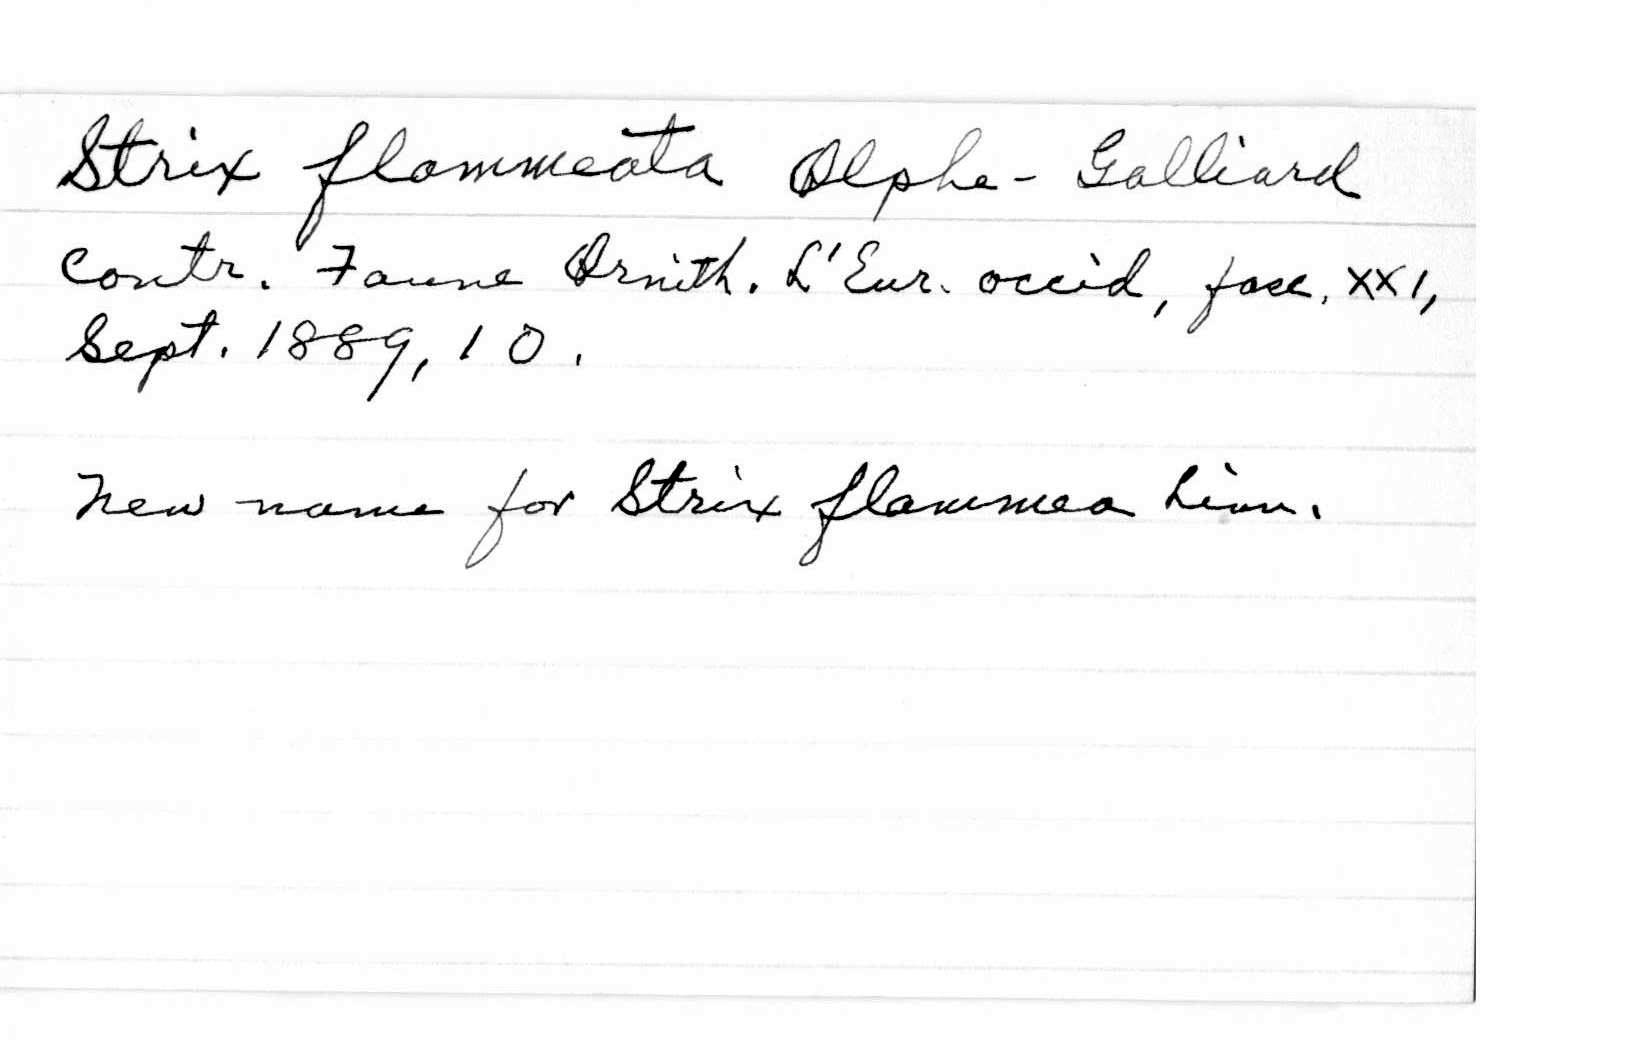 Strix flammeata Olphe-Galliard
Contr. Faune Ornith. L'Eur. occid, fasc. XXI,
Sept. 1889, 10.
New name for Strix flammea Linn.